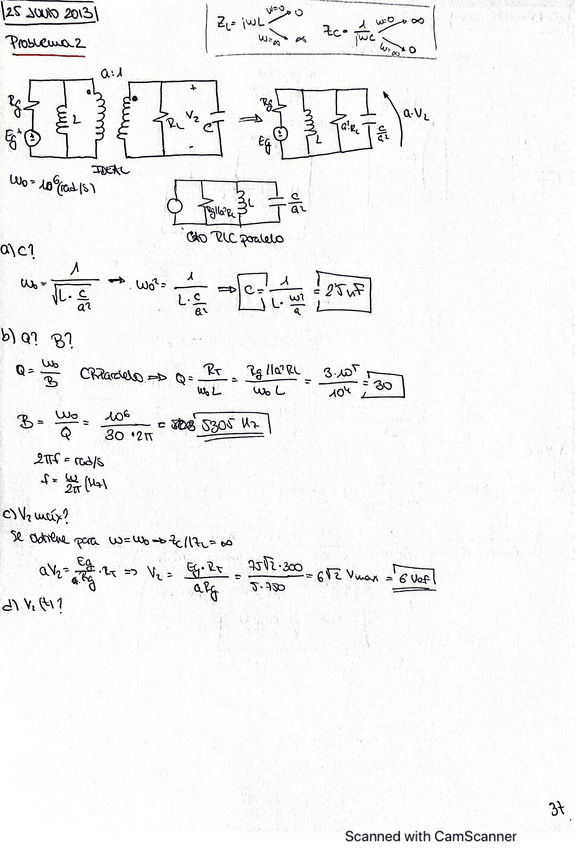 25 JULIO 2013
Problema 2
Z_L = jωL ω=0 → 0 ω=∞ → ∞ Z_C = 1/jωC ω=0 → ∞ ω=∞ → 0
a:1
Rg L R_L V₂ C ⇒ Rg L a²R_L C/a² a·V₂
Eg + + - Eg
IDEAL
ω₀ = 10⁶ (rad/s)
Rg//a²R_L L C/a²
Cto RLC paralelo
a) C?
ω₀ = 1/√(L·C/a²) → ω₀² = 1/(L·C/a²) ⇒ C = 1/(L·ω²/a) = 25 nF
b) Q? B?
Q = ω₀/B C.P. Paralelo ⇒ Q = R_T/ω₀L = Rg//a²RL/ω₀L = 3·10⁵/10⁴ = 30
B = ω₀/Q = 10⁶/30·2π = 5305 Hz
2πf = rad/s
f = ω/2π (Hz)
c) V₂ máx?
Se obtiene para ω=ω₀ → Z_C//Z_L = ∞
aV₂ = Eg/Rg · R_T ⇒ V₂ = Eg·R_T/aRg = 75√2·300/5·750 = 6√2 Vmax = 6 Vef
d) V₂(t)?
37
Scanned with CamScanner